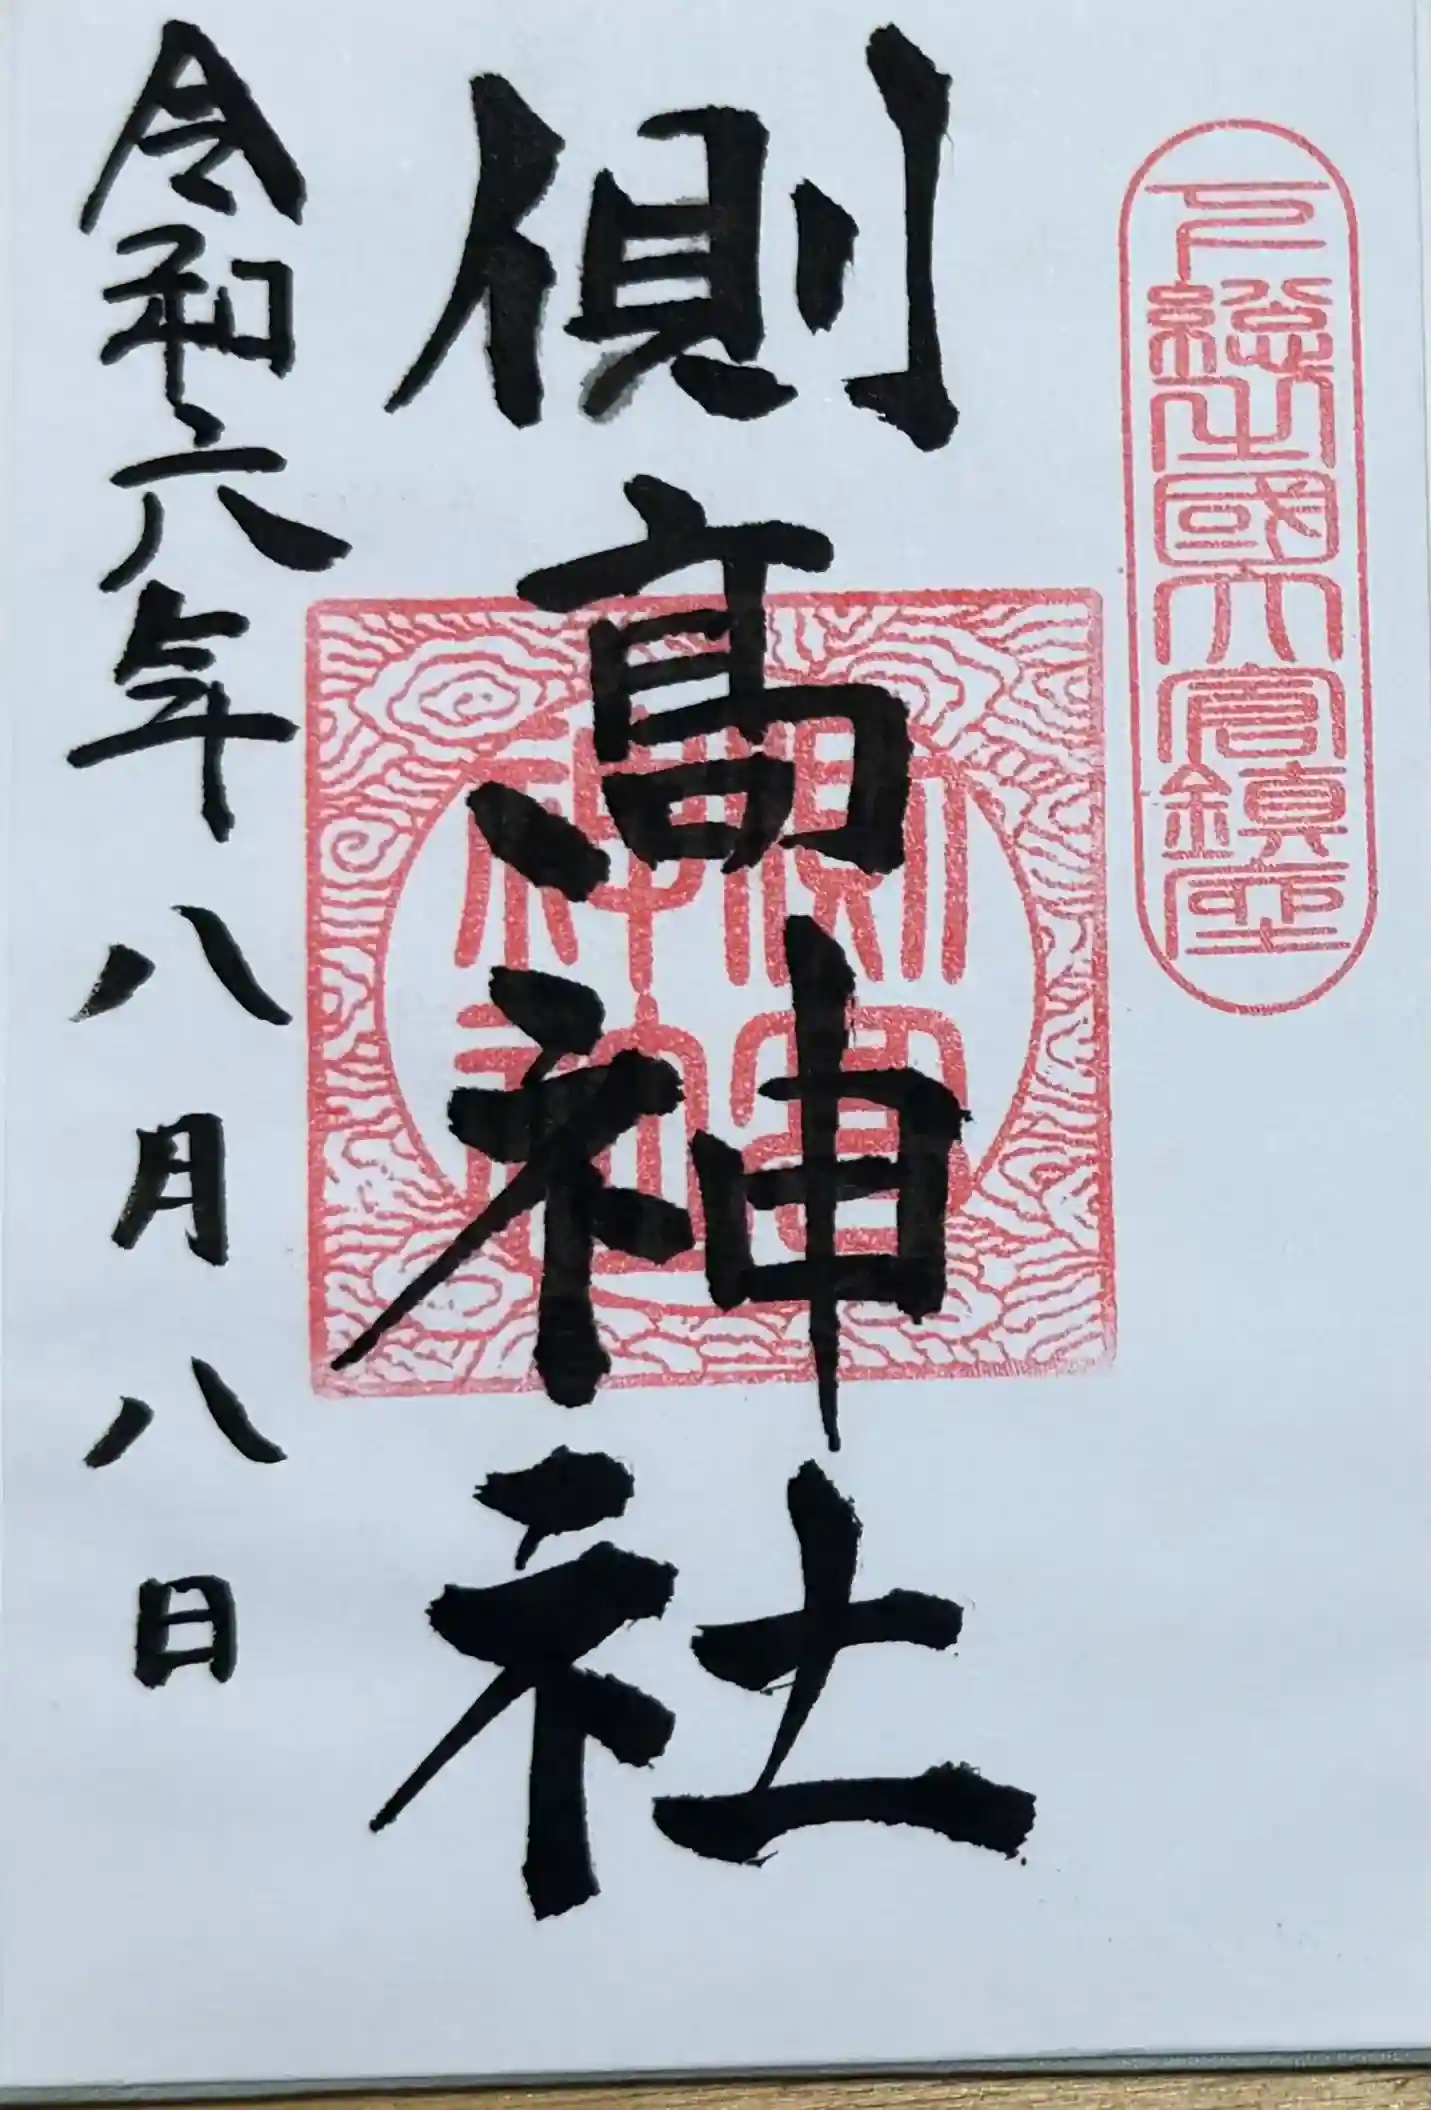 下總之國大倉鎮座
側高神社
側高神社
令和六年八月八日